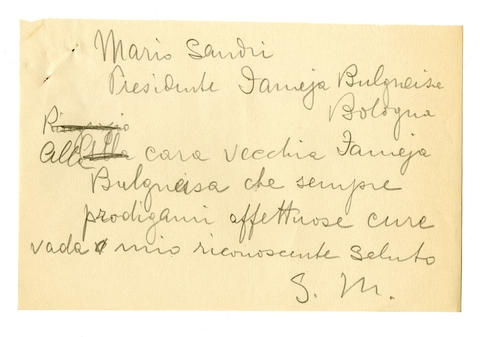 Mario Sandri
Presidente Fameja Bulgneisa
Bologna
Alla cara vecchia Fameja
Bulgneisa che sempre
prodigami affettuose cure
vada mio riconoscente saluto
G. M.